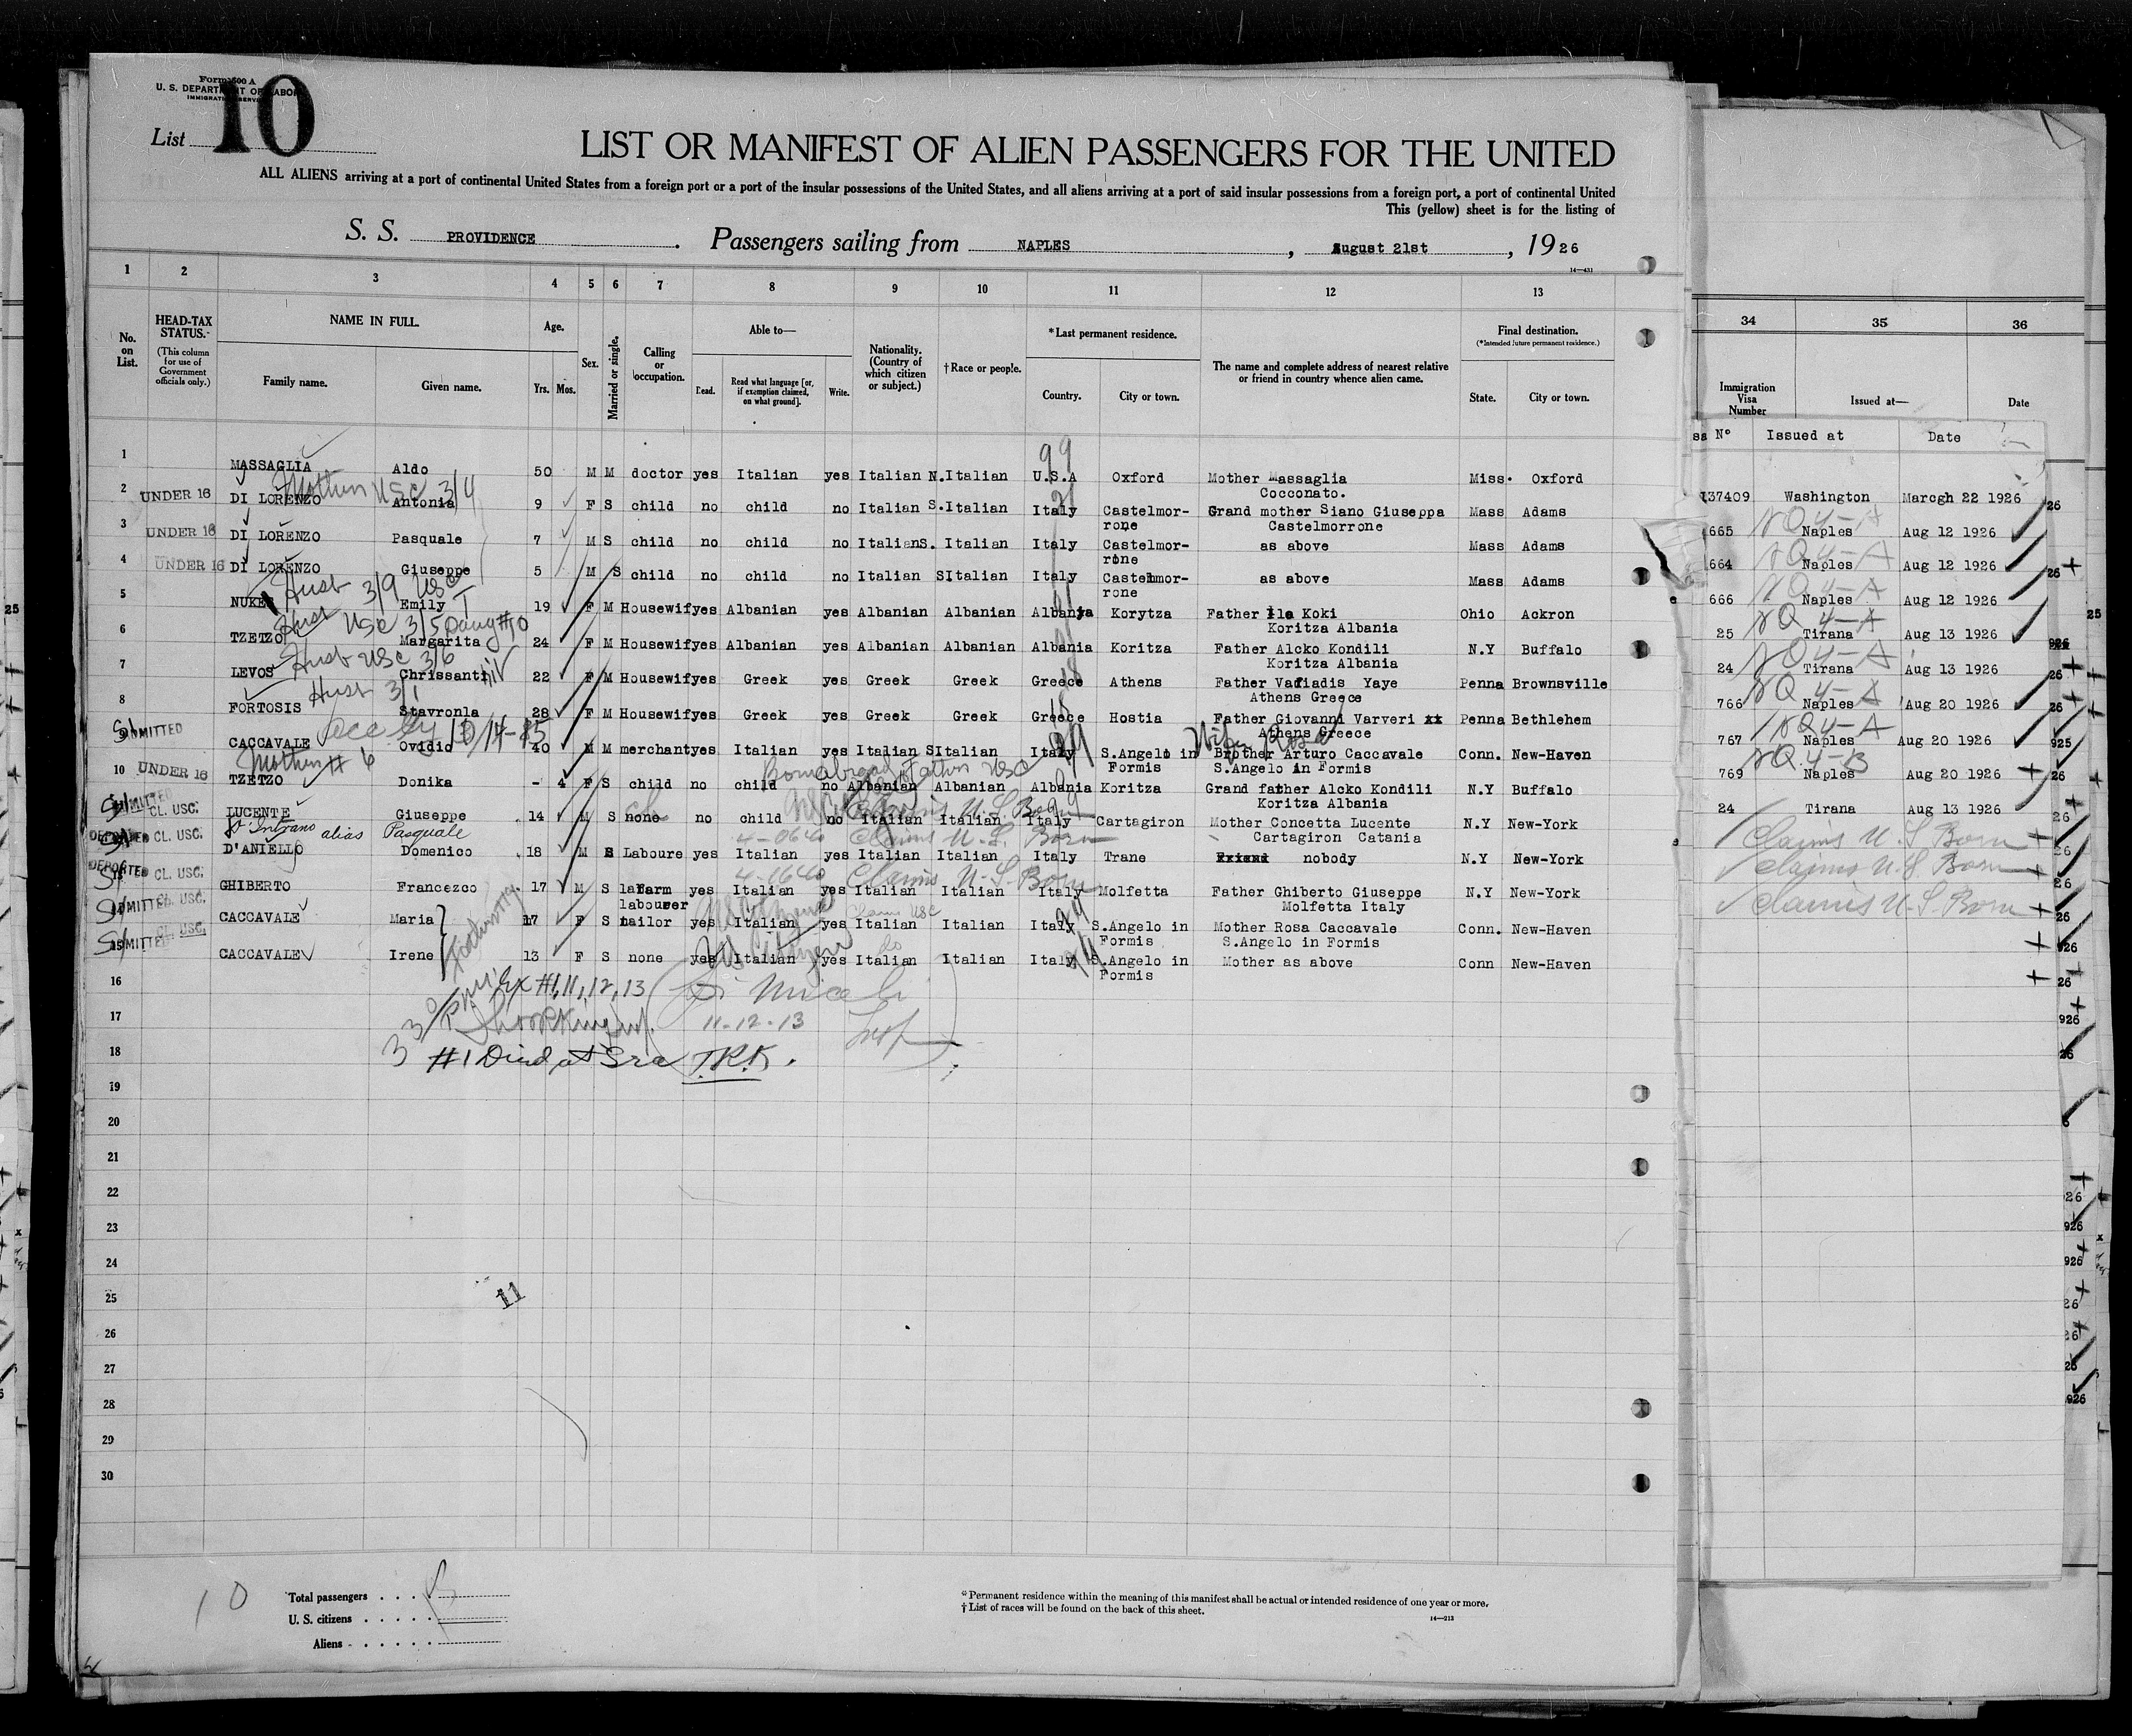 Form 500 A
U. S. DEPARTMENT OF LABOR
IMMIGRATION SERVICE
List 10
LIST OR MANIFEST OF ALIEN PASSENGERS FOR THE UNITED
ALL ALIENS arriving at a port of continental United States from a foreign port or a port of the insular possessions of the United States, and all aliens arriving at a port of said insular possessions from a foreign port, a port of continental United
This (yellow) sheet is for the listing of
S. S. PROVIDENCE. Passengers sailing from NAPLES, August 21st, 1926
14—431
1 2 3 4 5 6 7 8 9 10 11 12 13
34 35 36
No. on List.
HEAD-TAX STATUS.
(This column for use of Government officials only.)
NAME IN FULL.
Family name. Given name.
Age.
Yrs. Mos.
Sex.
Married or single.
Calling or occupation.
Able to—
Read. Read what language [or, if exemption claimed, on what ground]. Write.
Nationality. (Country of which citizen or subject.)
†Race or people.
*Last permanent residence.
Country. City or town.
The name and complete address of nearest relative or friend in country whence alien came.
Final destination.
(*Intended future permanent residence.)
State. City or town.
Immigration Visa Number Issued at— Date
sa N° Issued at Date
1 MASSAGLIA Aldo 50 M M doctor yes Italian yes Italian N.Italian U.S.A Oxford Mother Massaglia Miss. Oxford
Cocconato.
99
137409 Washington Marcgh 22 1926
Mother USC 3/4
2 UNDER 16 DI LORENZO Antonia 9 F S child no child no Italian S.Italian Italy Castelmor- Grand mother Siano Giuseppa Mass Adams
rone Castelmorrone
665 Naples Aug 12 1926
3 UNDER 16 DI LORENZO Pasquale 7 M S child no child no Italian S. Italian Italy Castelmor- as above Mass Adams
rone
664 Naples Aug 12 1926
4 UNDER 16 DI LORENZO Giuseppe 5 M S child no child no Italian SItalian Italy Castelmor- as above Mass Adams
rone
666 Naples Aug 12 1926
Husb 3/9 USC
5 Emily 19 F M Housewif yes Albanian yes Albanian Albanian Albania Korytza Father Koki Ohio Ackron
Koritza Albania
25 Tirana Aug 13 1926
Husb USC 3/5 Daug #10
6 TZETZO Margarita 24 F M Housewif yes Albanian yes Albanian Albanian Albania Koritza Father Alcko Kondili N.Y Buffalo
Koritza Albania
24 Tirana Aug 13 1926
Husb USC 3/6
7 LEVOS Chrissanti 22 F M Housewif yes Greek yes Greek Greek Greece Athens Father Vafiadis Yaye Penna Brownsville
Athens Greece
766 Naples Aug 20 1926
Husb 3/1
8 FORTOSIS Stavronla 28 F M Housewif yes Greek yes Greek Greek Greece Hostia Father Giovanni Varveri Penna Bethlehem
Athens Greece
767 Naples Aug 20 1926
Wife Rosa
9 ADMITTED CACCAVALE Ovidio 40 M M merchant yes Italian yes Italian SItalian Italy S.Angelo in Brother Arturo Caccavale Conn. New-Haven
Formis S.Angelo in Formis
769 Naples Aug 20 1926
Mother # 6
Born abroad Father USC
10 UNDER 16 TZETZO Donika - 4 F S child no child no Albanian Albanian Albania Koritza Grand father Alcko Kondili N.Y Buffalo
Koritza Albania
24 Tirana Aug 13 1926
Claims U.S. Born
ADMITTED CL. USC. LUCENTE Giuseppe 14 M S none no child no Italian Italian Italy Cartagiron Mother Concetta Lucente N.Y New-York
Cartagiron Catania
Claims U.S Born
alias Pasquale
4-0640 Claims U.S. Born
DEPORTED CL. USC. D'ANIELLO Domenico 18 M S Laboure yes Italian yes Italian Italian Italy Trane nobody N.Y New-York
Claims U.S. Born
Claims U.S. Born
DEPORTED CL. USC. GHIBERTO Francezco 17 M S farm yes Italian yes Italian Italian Italy Molfetta Father Ghiberto Giuseppe N.Y New-York
labourer Molfetta Italy
Claims U.S. Born
Claims USC
ADMITTED CL. USC. CACCAVALE Maria 17 F S tailor yes Italian yes Italian Italian Italy S.Angelo in Mother Rosa Caccavale Conn. New-Haven
Formis S.Angelo in Formis
US Citizen
ADMITTED CL. USC. CACCAVALE Irene 13 F S none yes Italian yes Italian Italian Italy S.Angelo in Mother as above Conn New-Haven
Formis
16
Ex #1, 11, 12, 13
17
11-12-13
Insp
18
#1 Died at Sea
19
20
21
22
23
24
25
11
26
27
28
29
30
10
Total passengers
U. S. citizens
Aliens
*Permanent residence within the meaning of this manifest shall be actual or intended residence of one year or more.
†List of races will be found on the back of this sheet.
14—213